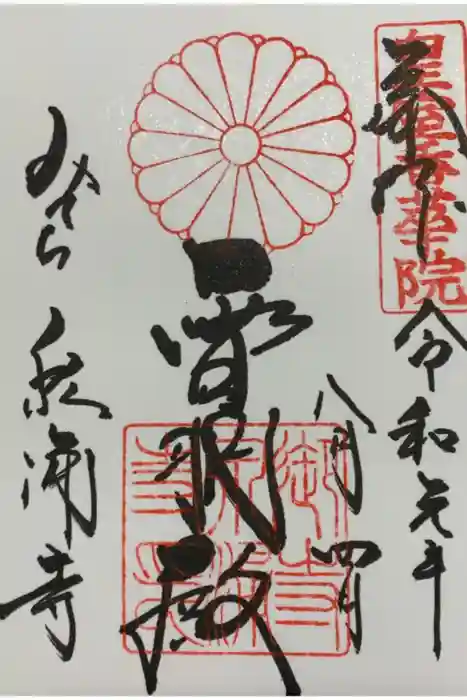 皇室香華院
奉拝
令和元年
八月四日
霊明殿
御寺
泉涌
みてら 泉涌寺